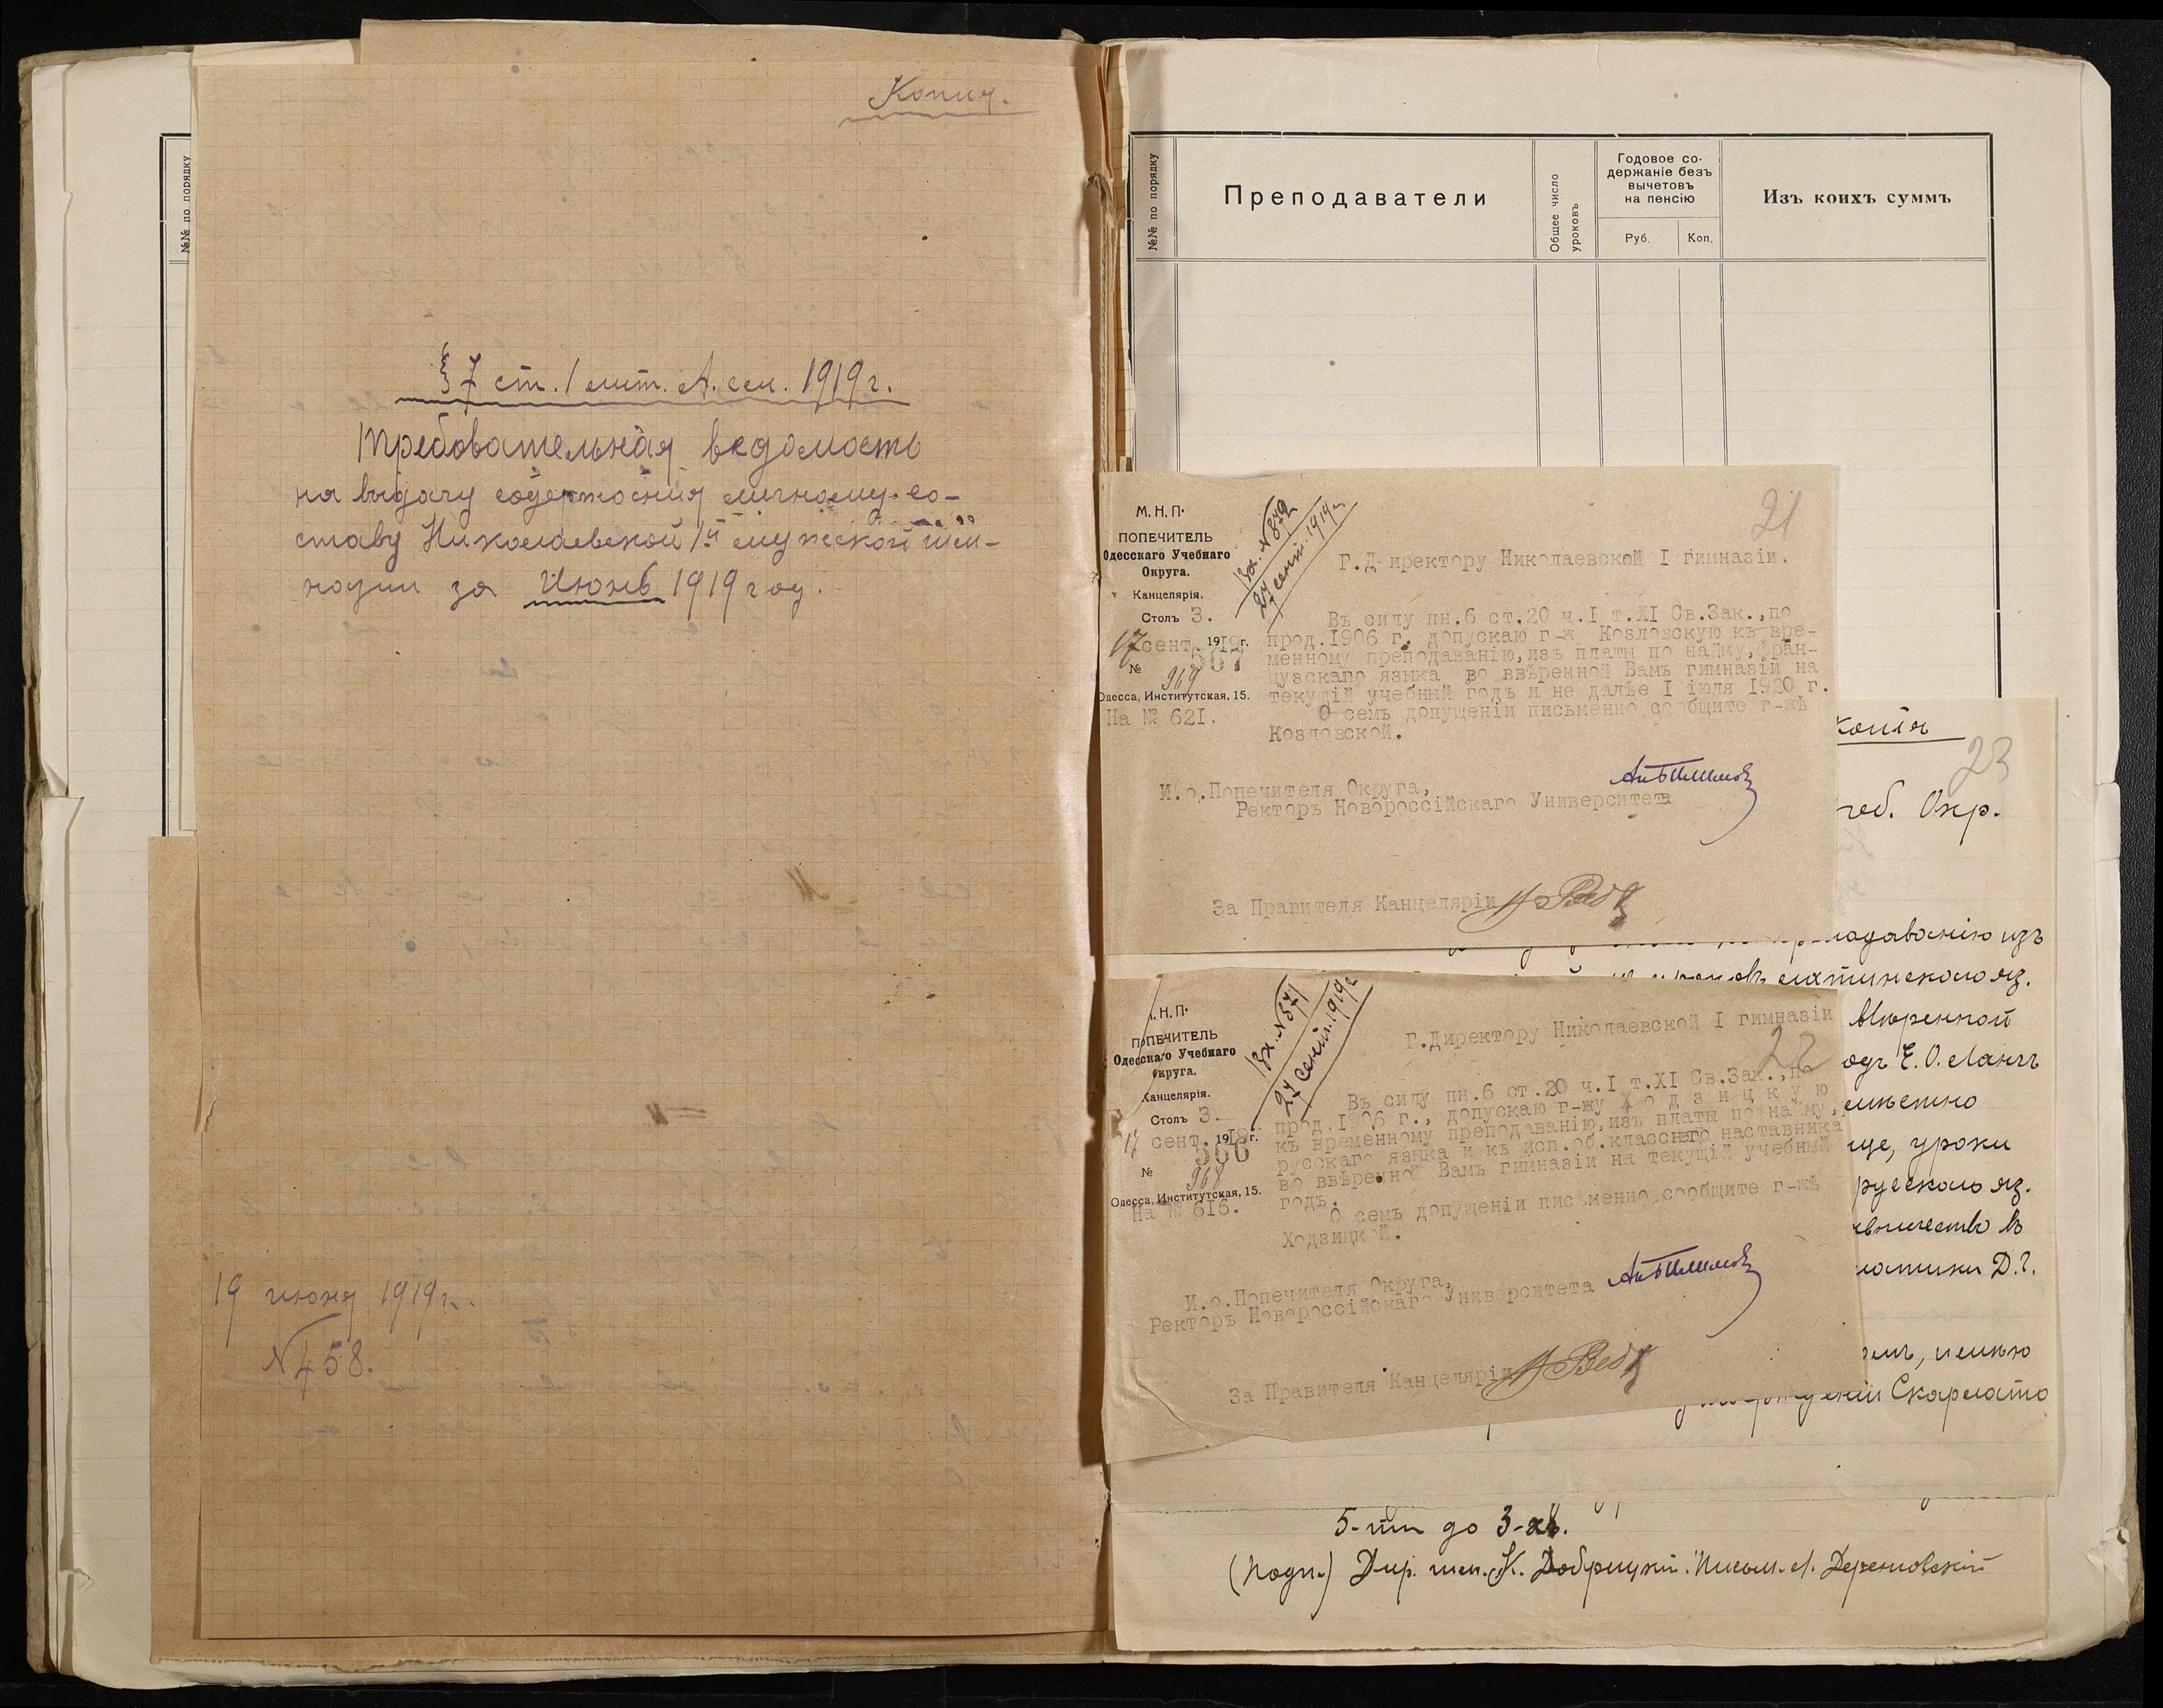 №№ по порядку
Копия.
§ 7 ст. 1 лит. А. см. 1919 г.
Требовательная ведомость
на выдачу содержания личному со-
ставу Николаевской 1й мужской гим-
назии за Июнь 1919 год.
19 июня 1919 г.
№ 458.
№№ по порядку
Преподаватели
Общее число уроковъ
Годовое со-
держаніе безъ
вычетовъ
на пенсію
Руб.
Коп.
Изъ коихъ суммъ
21
М. Н. П.
ПОПЕЧИТЕЛЬ
Одесскаго Учебнаго
Округа.
Канцелярія.
Столъ 3.
17 сент. 1919 г.
№ 567
969
Одесса, Институтская, 15.
На № 621.
Вх. № 872
27 сент. 1919 г.
Г.Директору Николаевской I гимназіи.
Въ силу пн.6 ст.20 ч.I т.XI Св.Зак.,по
прод.1906 г. допускаю г-жу Козловскую къ вре-
менному преподаванію,изъ платы по найму,фран-
цузскаго языка во ввѣренной Вамъ гимназіи на
текущій учебный годъ и не далѣе I іюля 1920 г.
О семъ допущеніи письменно сообщите г-жѣ
Козловской.
И.о.Попечителя Округа,
Ректоръ Новороссійскаго Университета
За Правителя Канцеляріи
22
Н. П.
ПОПЕЧИТЕЛЬ
Одесскаго Учебнаго
Округа.
Канцелярія.
Столъ 3.
17 сент. 1919 г.
№ 566
968
Одесса, Институтская, 15.
На № 616.
Вх. № 871
27 сент. 1919 г.
Г.Директору Николаевской I гимназіи
Въ силу пн.6 ст.20 ч.I т.XI Св.Зак.,по
прод.1906 г., допускаю г-жу Ходзицкую
къ временному преподаванію,изъ платы по найму,
русскаго языка и къ исп.об.класснаго наставника
во ввѣренной Вамъ гимназіи на текущій учебный
годъ.
О семъ допущеніи письменно сообщите г-жѣ
Ходзицкой.
И.о.Попечителя Округа,
Ректоръ Новороссійскаго Университета
За Правителя Канцеляріи
Копія
23
Окр.
изъ
латинскаго яз.
Е. О. Лангъ
уроки
русскаго яз.
Скарлато
5-ти до 3-хъ.
(Подп.) Дир. гим. К. Добрицкій. Письм. Л. Дерешовскій